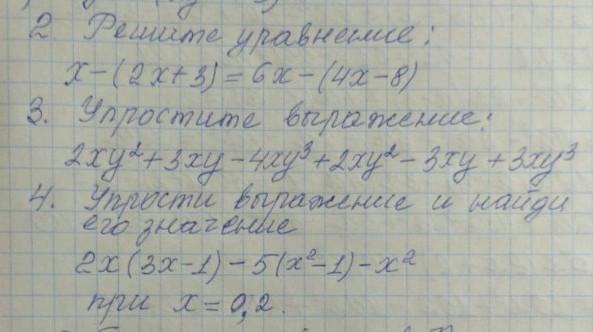 2. Решите уравнение:
x-(2x+3)=6x-(4x-8)
3. Упростите выражение:
2xy²+3xy-4xy³+2xy²-3xy+3xy³
4. Упрости выражение и найди
его значение
2x(3x-1)-5(x²-1)-x²
при x=0,2.